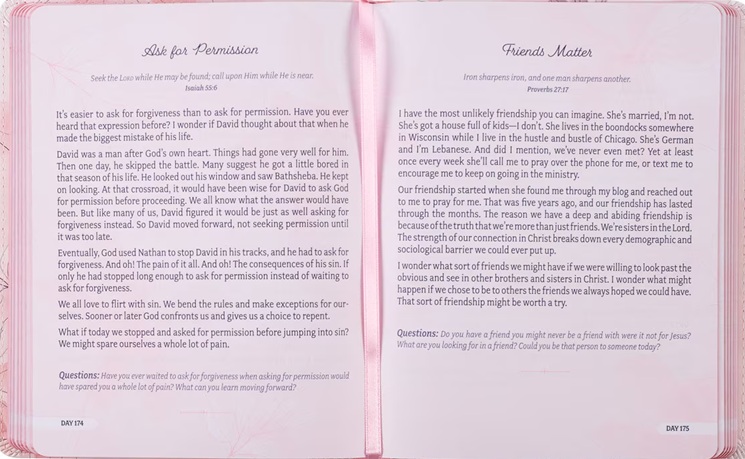 Ask for Permission
Seek the LORD while He may be found; call upon Him while He is near.
Isaiah 55:6
It's easier to ask for forgiveness than to ask for permission. Have you ever
heard that expression before? I wonder if David thought about that when he
made the biggest mistake of his life.
David was a man after God's own heart. Things had gone very well for him.
Then one day, he skipped the battle. Many suggest he got a little bored in
that season of his life. He looked out his window and saw Bathsheba. He kept
on looking. At that crossroad, it would have been wise for David to ask God
for permission before proceeding. We all know what the answer would have
been. But like many of us, David figured it would be just as well asking for
forgiveness instead. So David moved forward, not seeking permission until
it was too late.
Eventually, God used Nathan to stop David in his tracks, and he had to ask for
forgiveness. And oh! The pain of it all. And oh! The consequences of his sin. If
only he had stopped long enough to ask for permission instead of waiting to
ask for forgiveness.
We all love to flirt with sin. We bend the rules and make exceptions for our-
selves. Sooner or later God confronts us and gives us a choice to repent.
What if today we stopped and asked for permission before jumping into sin?
We might spare ourselves a whole lot of pain.
Questions: Have you ever waited to ask for forgiveness when asking for permission would
have spared you a whole lot of pain? What can you learn moving forward?
DAY 174
Friends Matter
Iron sharpens iron, and one man sharpens another.
Proverbs 27:17
I have the most unlikely friendship you can imagine. She's married, I'm not.
She's got a house full of kids—I don't. She lives in the boondocks somewhere
in Wisconsin while I live in the hustle and bustle of Chicago. She's German
and I'm Lebanese. And did I mention, we've never even met? Yet at least
once every week she'll call me to pray over the phone for me, or text me to
encourage me to keep on going in the ministry.
Our friendship started when she found me through my blog and reached out
to me to pray for me. That was five years ago, and our friendship has lasted
through the months. The reason we have a deep and abiding friendship is
because of the truth that we're more than just friends. We're sisters in the Lord.
The strength of our connection in Christ breaks down every demographic and
sociological barrier we could ever put up.
I wonder what sort of friends we might have if we were willing to look past the
obvious and see in other brothers and sisters in Christ. I wonder what might
happen if we chose to be to others the friends we always hoped we could have.
That sort of friendship might be worth a try.
Questions: Do you have a friend you might never be a friend with were it not for Jesus?
What are you looking for in a friend? Could you be that person to someone today?
DAY 175